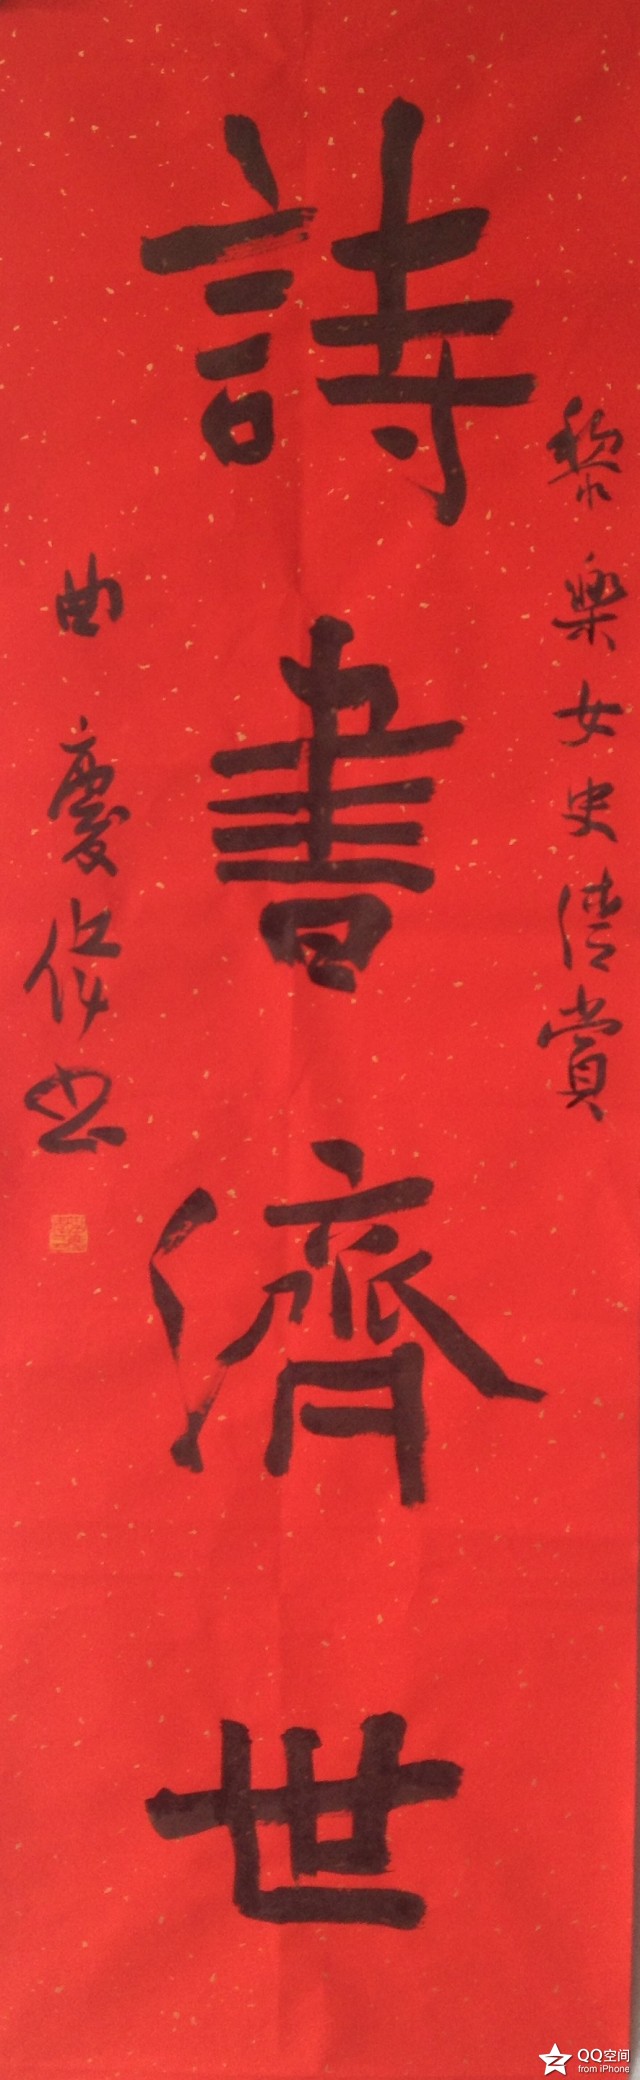 黎樂女史清賞
詩書濟世
曲慶偉书
QQ空间
from iPhone